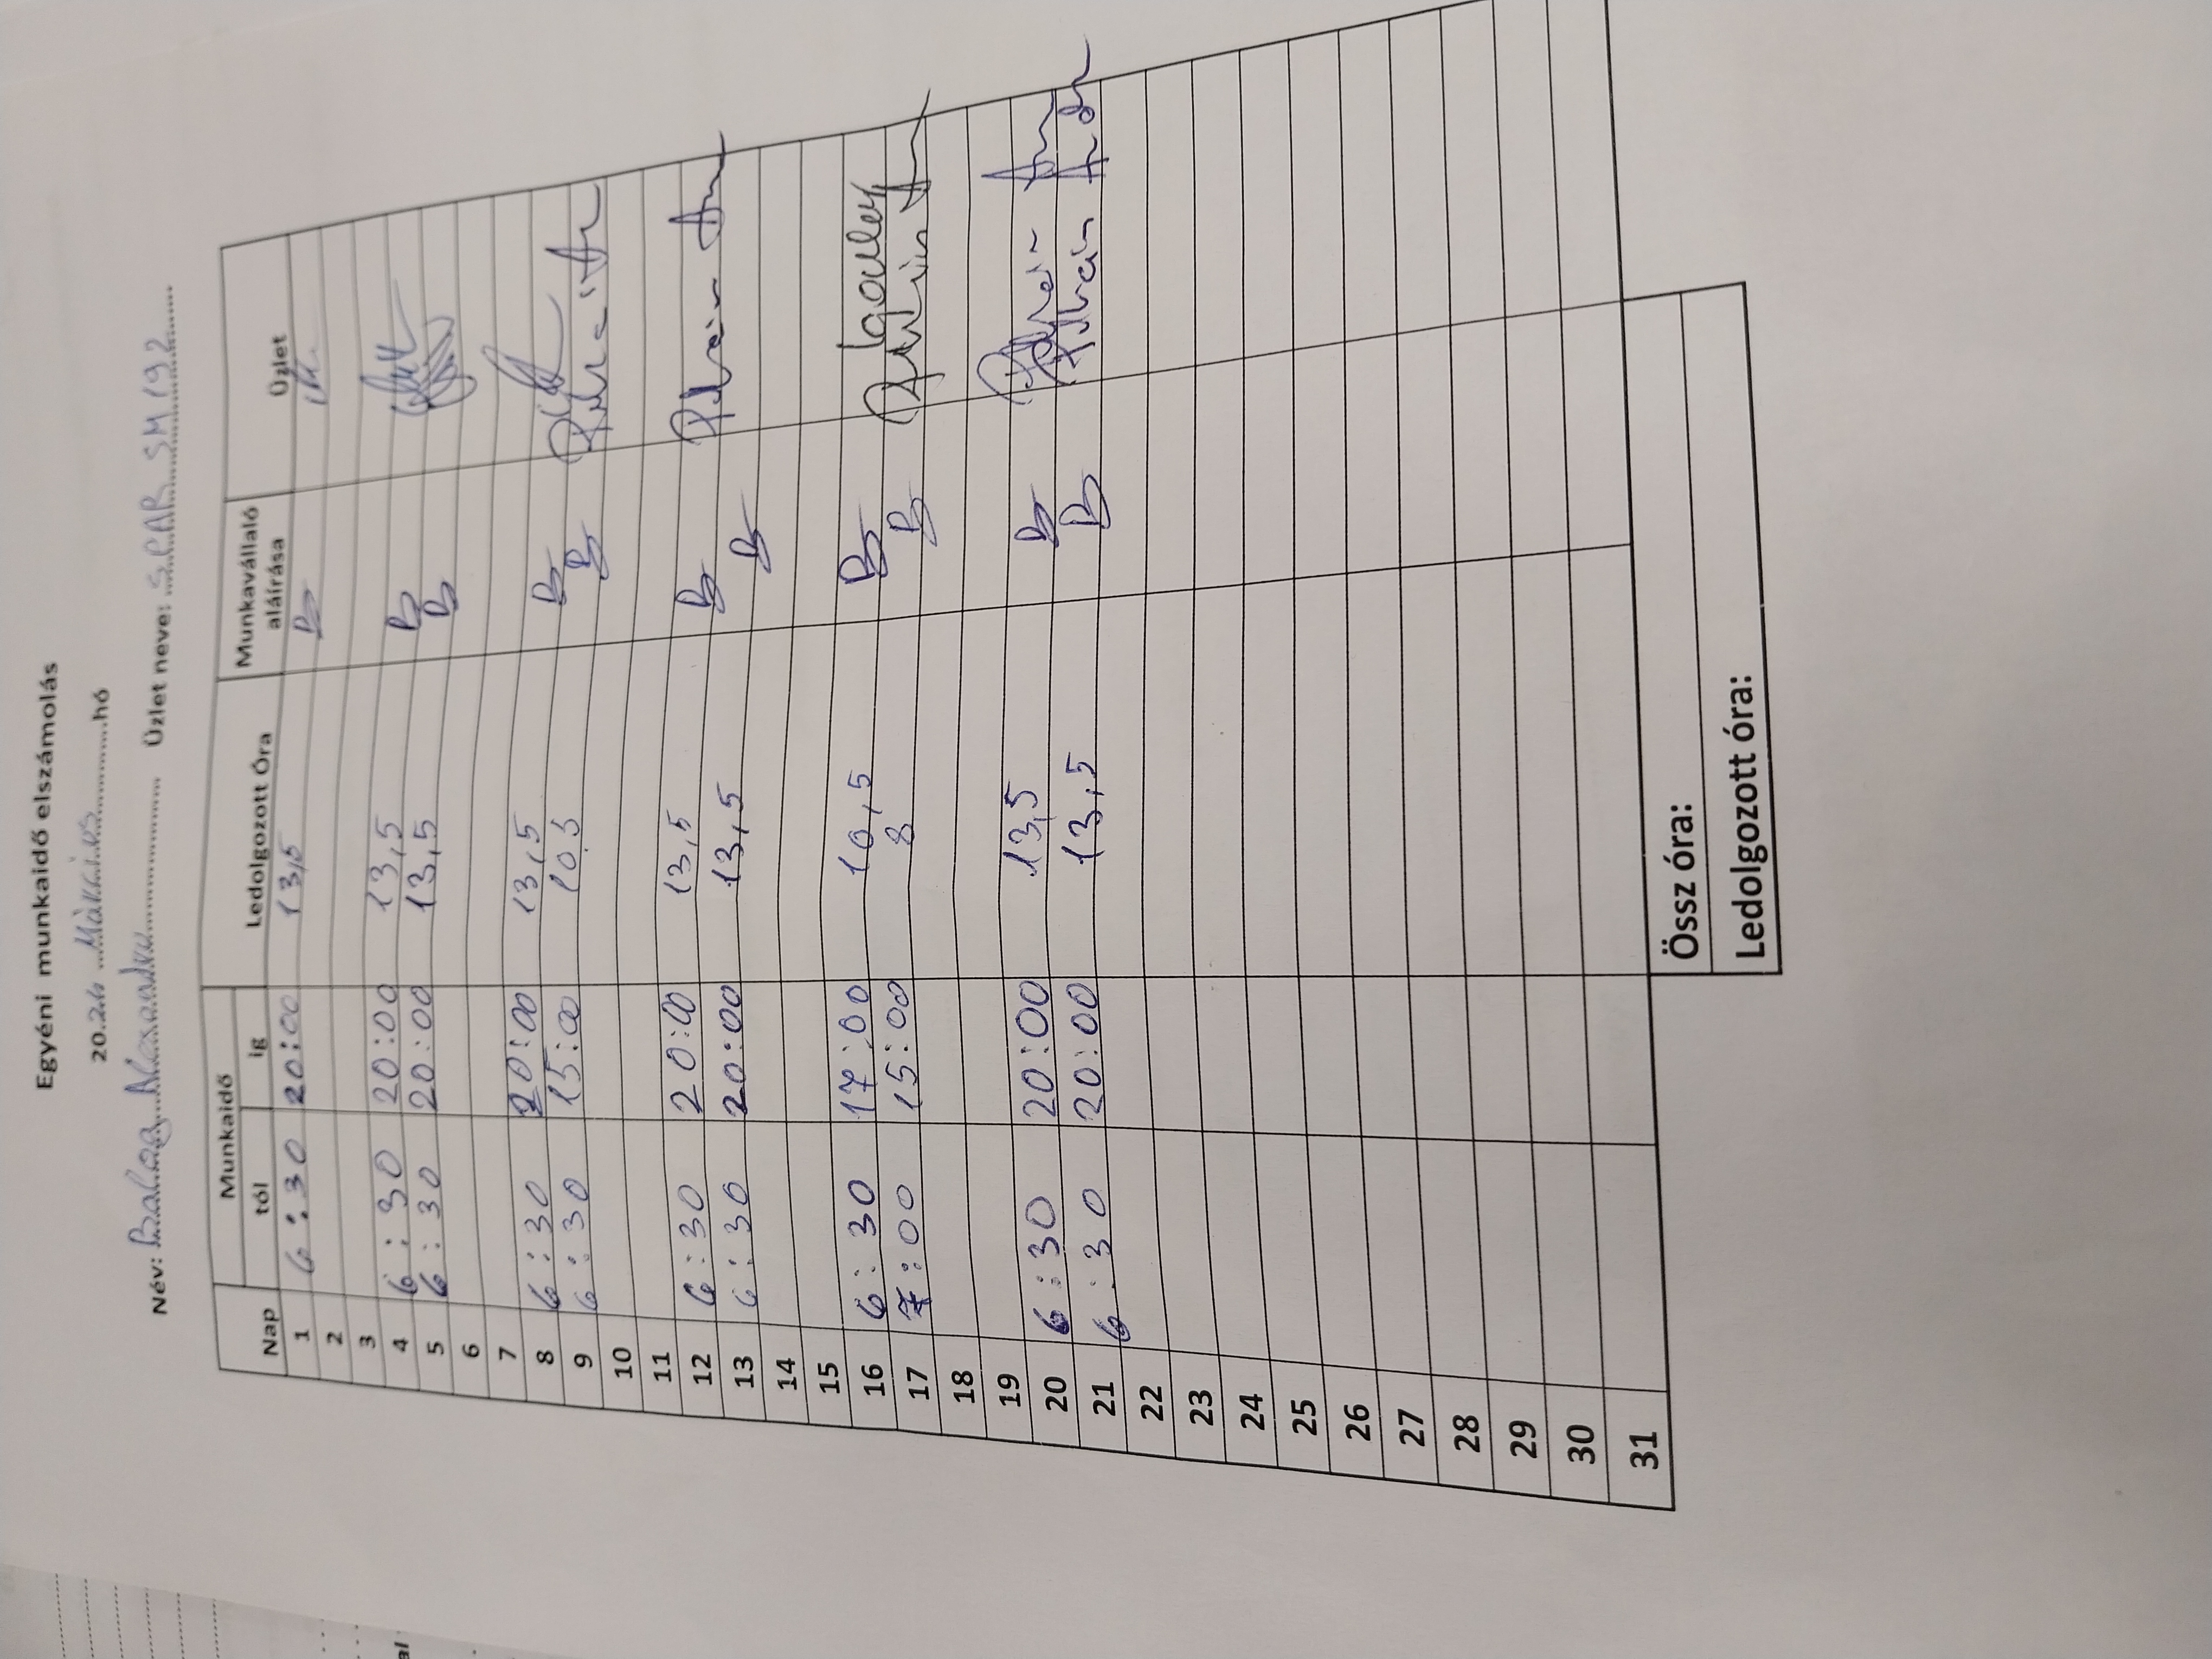 Egyéni munkaidő elszámolás
20.26 Március hó
Név: Balog Alexandra Üzlet neve: SPAR SM 192
Nap Munkaidő Ledolgozott Óra Munkavállaló aláírása Üzlet
tól ig
1 6:30 20:00 13,5
2
3
4 6:30 20:00 13,5
5 6:30 20:00 13,5
6
7
8 6:30 20:00 13,5
9 6:30 15:00 10.5
10
11
12 6:30 20:00 13,5
13 6:30 20:00 13,5
14
15
16 6:30 17:00 10,5 Igazolás
17 7:00 15:00 8
18
19
20 6:30 20:00 13,5
21 6:30 20:00 13,5
22
23
24
25
26
27
28
29
30
31
Össz óra:
Ledolgozott óra:
al